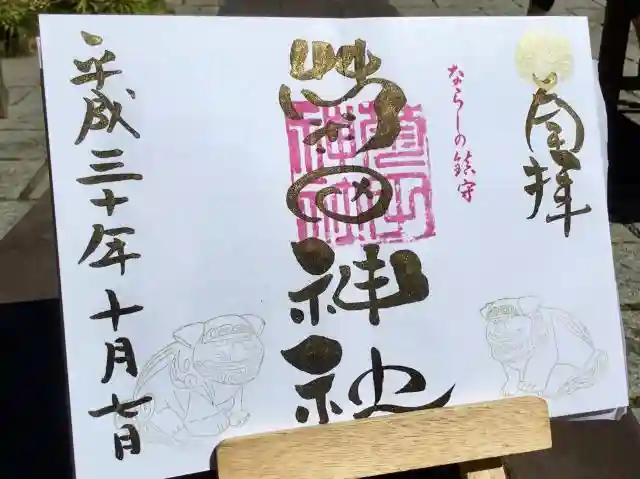 奉拝
ならしの鎮守
菊田神社
菊田
神社
平成三十年十月七日